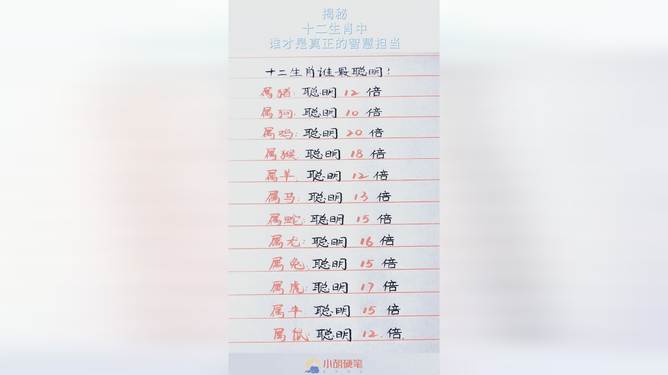 揭秘
十二生肖中
谁才是真正的智慧担当
十二生肖谁最聪明!
属猪:聪明12倍
属狗:聪明10倍
属鸡:聪明20倍
属猴 聪明18倍
属羊:聪明12倍
属马:聪明13倍
属蛇:聪明15倍
属龙:聪明16倍
属兔:聪明15倍
属虎:聪明17倍
属牛 聪明15倍
属鼠:聪明12倍
小胡硬笔